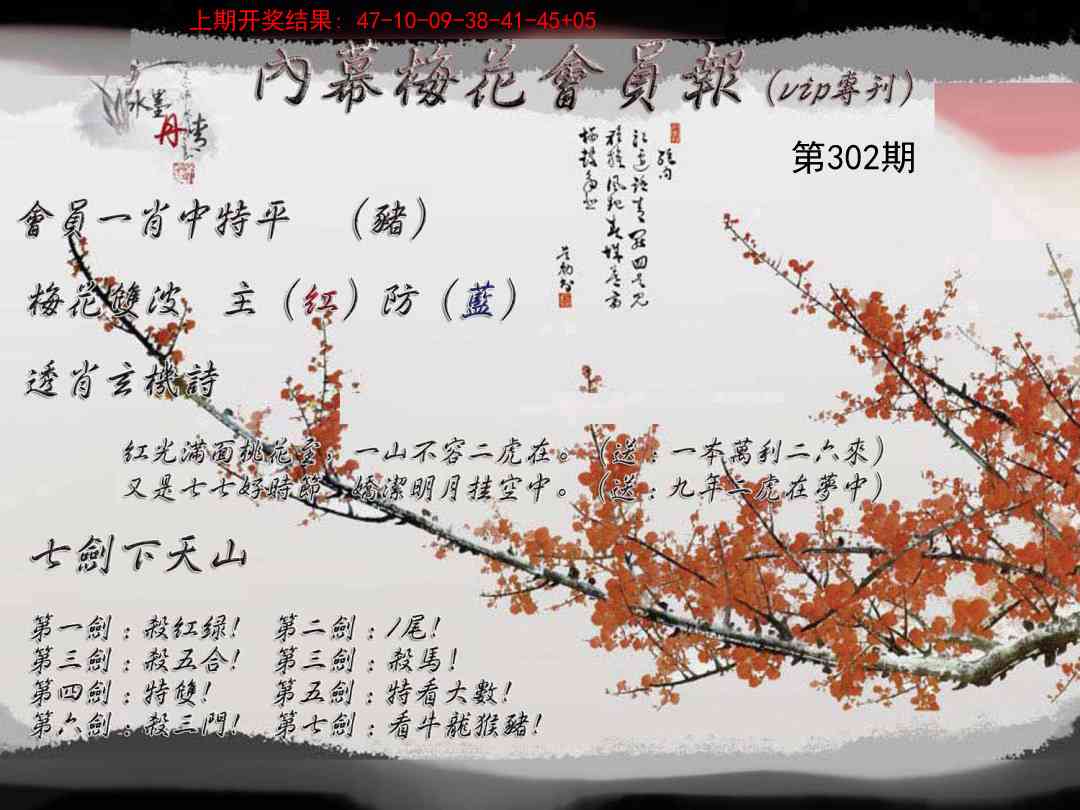 上期开奖结果: 47-10-09-38-41-45+05
內幕梅花會員報(vip專刊)
水墨丹青
第302期
會員一肖中特平 （豬）
梅花雙波 主（红）防（藍）
透肖玄機詩
红光滿面桃花室，一山不容二虎在。（送：一本萬利二六來）
又是七七好時節，嬌潔明月挂空中。（送：九年二虎在夢中）
七劍下天山
第一劍：殺红绿! 第二劍：1尾!
第三劍：殺五合! 第三劍：殺馬!
第四劍：特雙! 第五劍：特看大數!
第六劍：殺三門! 第七劍：看牛龍猴豬!